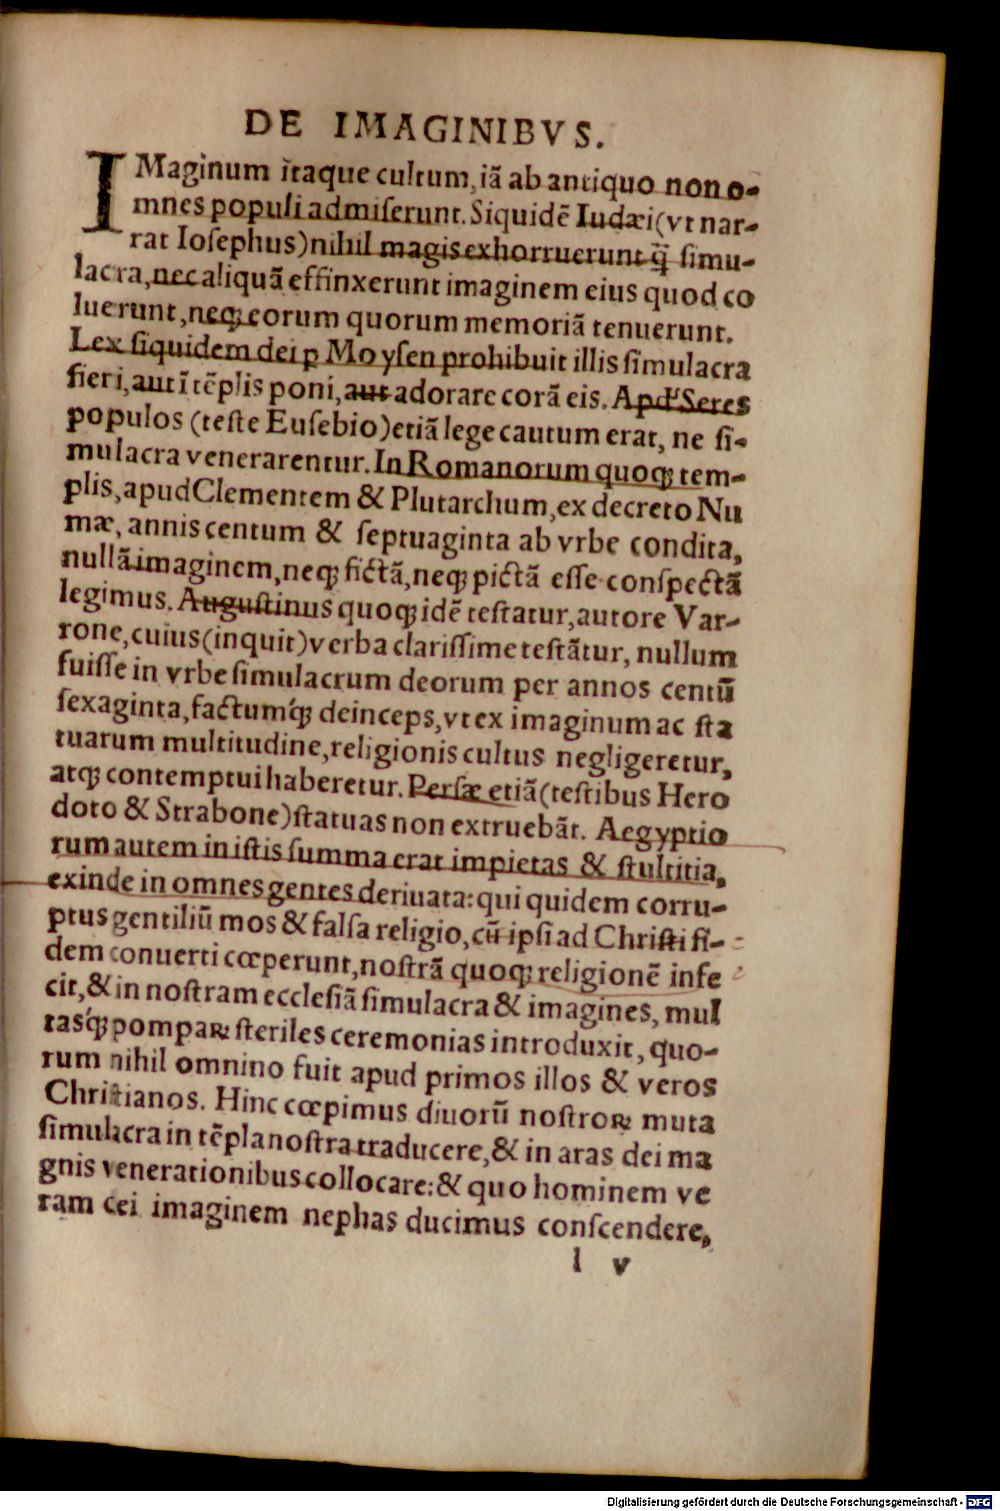 DE IMAGINIBVS.
IMaginum itaque cultum, iã ab antiquo non o-
mnes populi admiserunt. Siquidẽ Iudæi (vt nar-
rat Iosephus) nihil magis exhorruerunt q̃ simu-
lacra, nec aliquã effinxerunt imaginem eius quod co
luerunt, neq; eorum quorum memoriã tenuerunt.
Lex siquidem dei ꝑ Moysen prohibuit illis simulacra
fieri, aut ĩ tẽplis poni, aut adorare corã eis. Apđ Seres
populos (teste Eusebio) etiã lege cautum erat, ne si-
mulacra venerarentur. In Romanorum quoq; tem-
plis, apud Clementem & Plutarchum, ex decreto Nu
mæ, annis centum & septuaginta ab vrbe condita,
nullã imaginem, neq; fictã, neq; pictã esse conspectã
legimus. Augustinus quoq; idẽ testatur, autore Var-
rone, cuius (inquit) verba clarissime testãtur, nullum
fuisse in vrbe simulacrum deorum per annos centũ
sexaginta, factumq́; deinceps, vt ex imaginum ac sta
tuarum multitudine, religionis cultus negligeretur,
atq; contemptui haberetur. Persæ etiã (testibus Hero
doto & Strabone) statuas non extruebãt. Aegyptio
rum autem in istis summa erat impietas & stultitia,
exinde in omnes gentes deriuata: qui quidem corru-
ptus gentiliũ mos & falsa religio, cũ ipsi ad Christi fi-
dem conuerti cœperunt, nostrã quoq; religionẽ infe
cit, & in nostram ecclesiã simulacra & imagines, mul
tasq́; pompaꝝ steriles ceremonias introduxit, quo-
rum nihil omnino fuit apud primos illos & veros
Christianos. Hinc cœpimus diuorũ nostroꝝ muta
simulacra in tẽpla nostra traducere, & in aras dei ma
gnis venerationibus collocare: & quo hominem ve
ram cei imaginem nephas ducimus conscendere,
l v
Digitalisierung gefördert durch die Deutsche Forschungsgemeinschaft - DFG